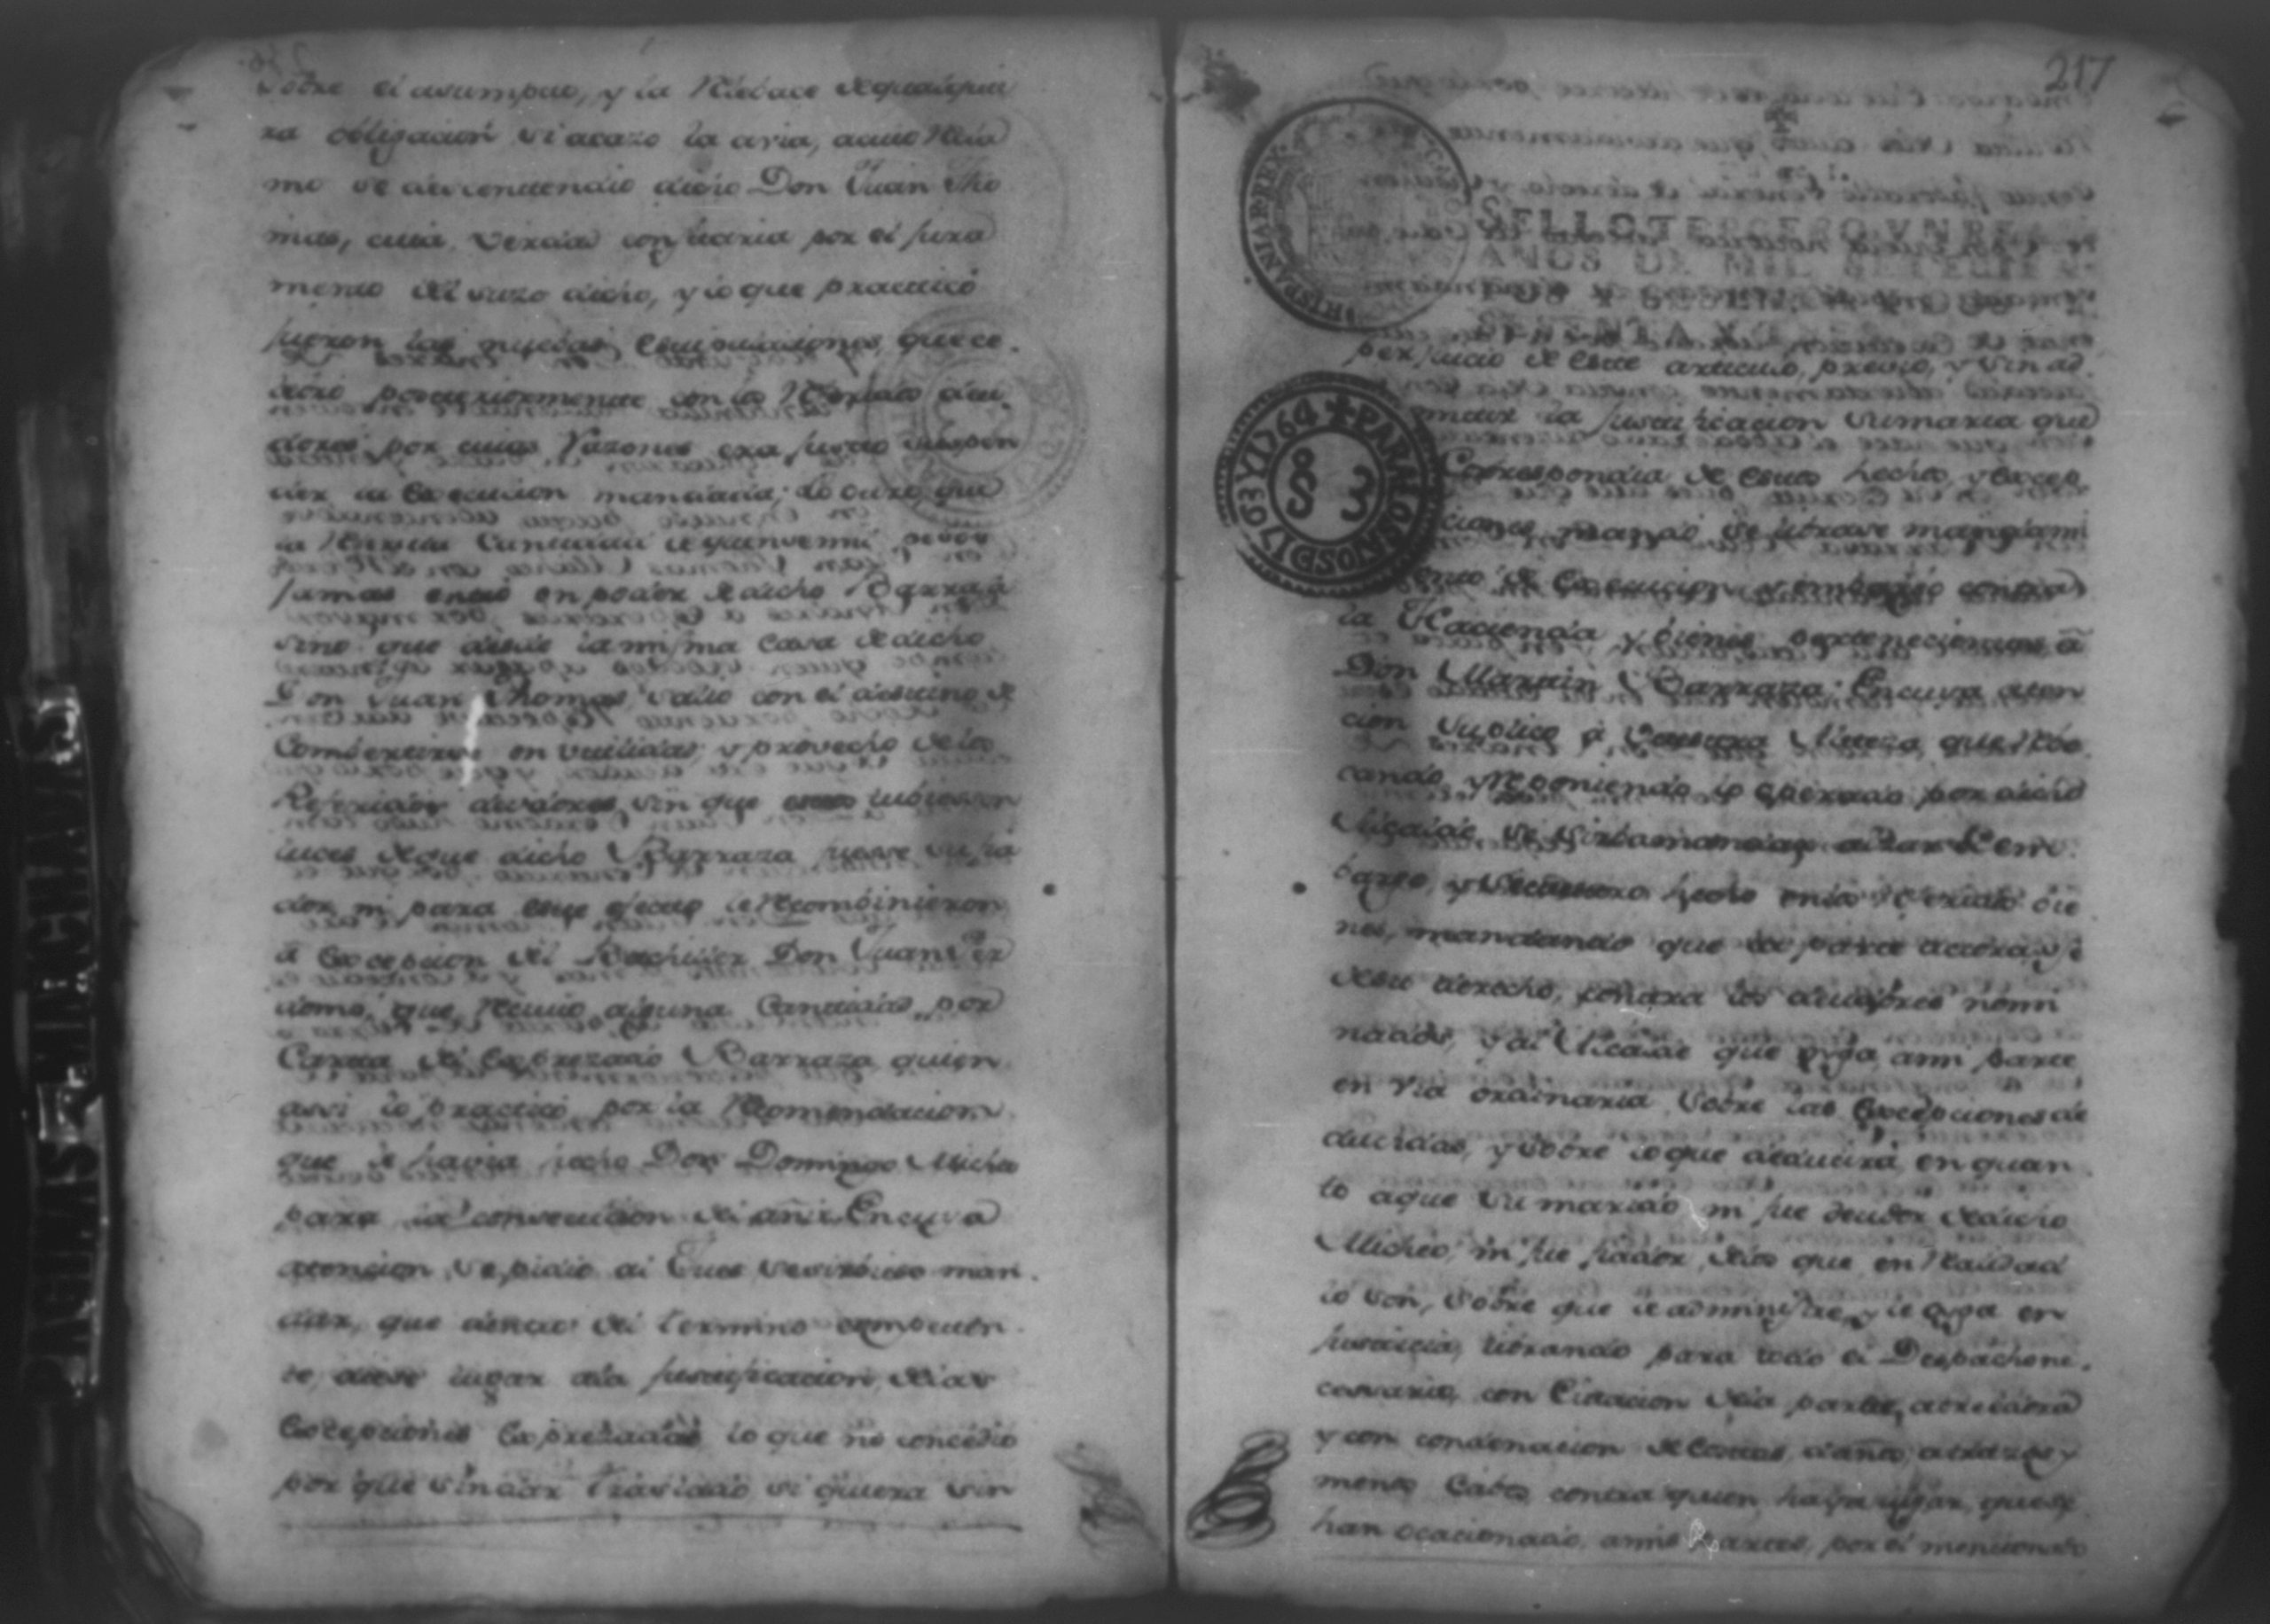 sobre el asumpto, y la Relebace de qualqui
ra obligacion si acazo la avia, como Ult
mo se av contentado dicho Don Juan Tho
mas, cuia verdad constaria por el jura
mento del suzo dicho, y lo que practicó
fueron las nuebas que se
posteriormente con los Referidos deu
dores por cuias Razones era justo suspen
der la Execucion mandada; de que
la Cantidad
jamas entró en poder de dicho Barraza
sino que desde la misma Casa de dicho
Don Juan Thomas, salio con el destino de
Combertirse en utilidad, y provecho de los
Referidos deudores, sin que estos
luces de que dicho Barraza fuese su fia
dor, ni para este efecto le Recombinieron
á Excepcion del Bachiller Don Juan Per
domo, que Recivio alguna Cantidad por
Carta del Exprezado Barraza, quien
assi lo practicó por la Recomendacion
que le havia hecho Don Domingo Micheo
para la consecucion del añir. En cuya
atencion se pidio al Juez se sirbiese man
dar, que dentro del termino competen
te, diese lugar ala justificacion, delas
Excepciones Exprezadas lo que no concedió
por que sin dar traslado si quiera sin
217
SELLO TERCERO, VN REAL
AÑOS DE MIL SETECIEN
TOS Y SESENTA Y DOS Y
SESENTA Y TRES
HISPANIAR REX
PARA LOS AÑOS D 1763 Y 1764
perjuicio de este articulo, previo, y sin ad
mitir la justificacion sumaria que
Correspondia de estos hechos, y Excep
ciones, mandó se librase mandami
ento de Execucion y embargo contra
la Hacienda y bienes pertenecientes á
Don Martin Barraza. En cuya aten
cion suplico á Vuestra Alteza, que Rebo
cando, y Reponiendo lo operado por dicho
Alcalde se sirba mandar alzar el em
bargo, y Secuestro hecho en los Referidos bie
nes, mandando que la parte actora, use
de su derecho, contra los deudores nomi
nados, y al Alcalde que oyga ami parte
en via ordinaria sobre las Excepciones de
ducidas, y sobre lo que deducirá, en quan
to aque su marido ni fue deudor de dicho
Micheo, ni fue fiador, delos que en Realidad
lo son, sobre que le administre, y le oyga en
justicia, librando para todo el Despacho ne
cesario, con Citacion dela parte, acreedora
y con condenacion de Costas, daños, atrazos y
menos Cabos, contra quien haya lugar, que se
han ocacionado, amis Partes, por el mencionado